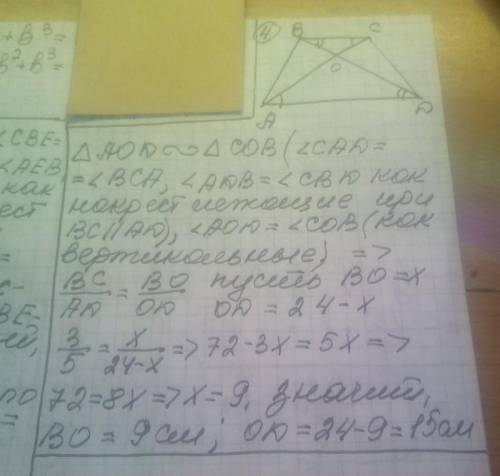 + в³ =
в² + в³ =
4
B C
O
A D
∠CBE=
∠AEB
как
=
C-
BE-
по
=
△AOD ∾ △COB (∠CAD =
= ∠BCA, ∠ADB = ∠CBD как
накрест лежащие при
BC||AD), ∠AOD = ∠COB (как
вертикальные) =>
BC/AD = BO/OD пусть BO = x
OD = 24 - x
3/5 = x/24-x => 72 - 3x = 5x =>
72 = 8x => x = 9, значит,
BO = 9 см; OD = 24 - 9 = 15 см